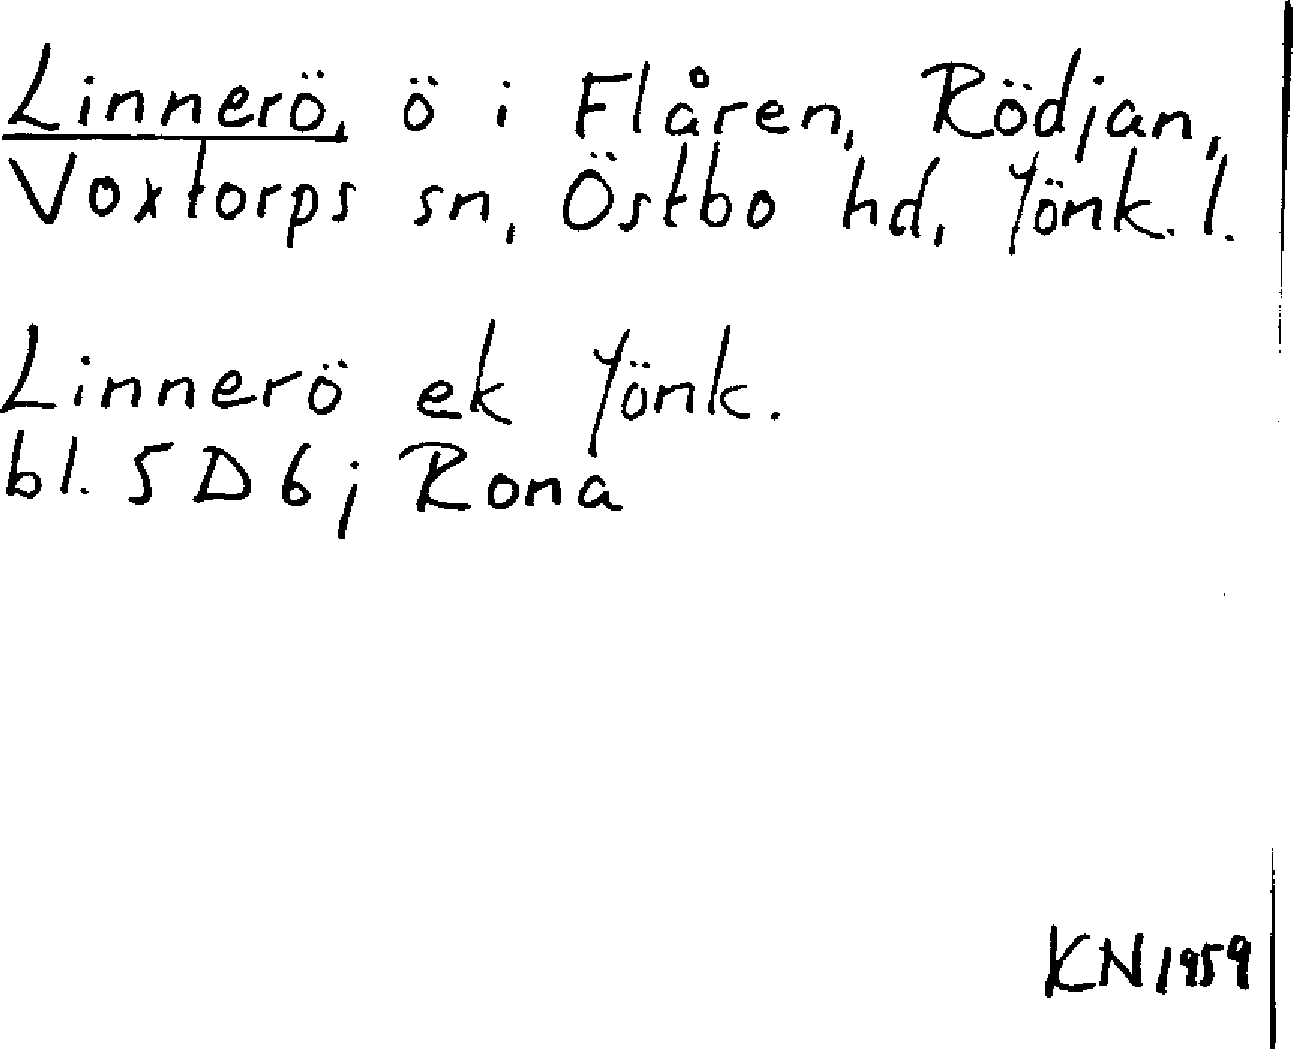 Linnerö, ö i Flåren, Rödjan,
Voxtorps sn, Östbo hd, Jönk. l.
Linnerö ek Jönk.
bl. 5 D 6; Rona
KN 1959